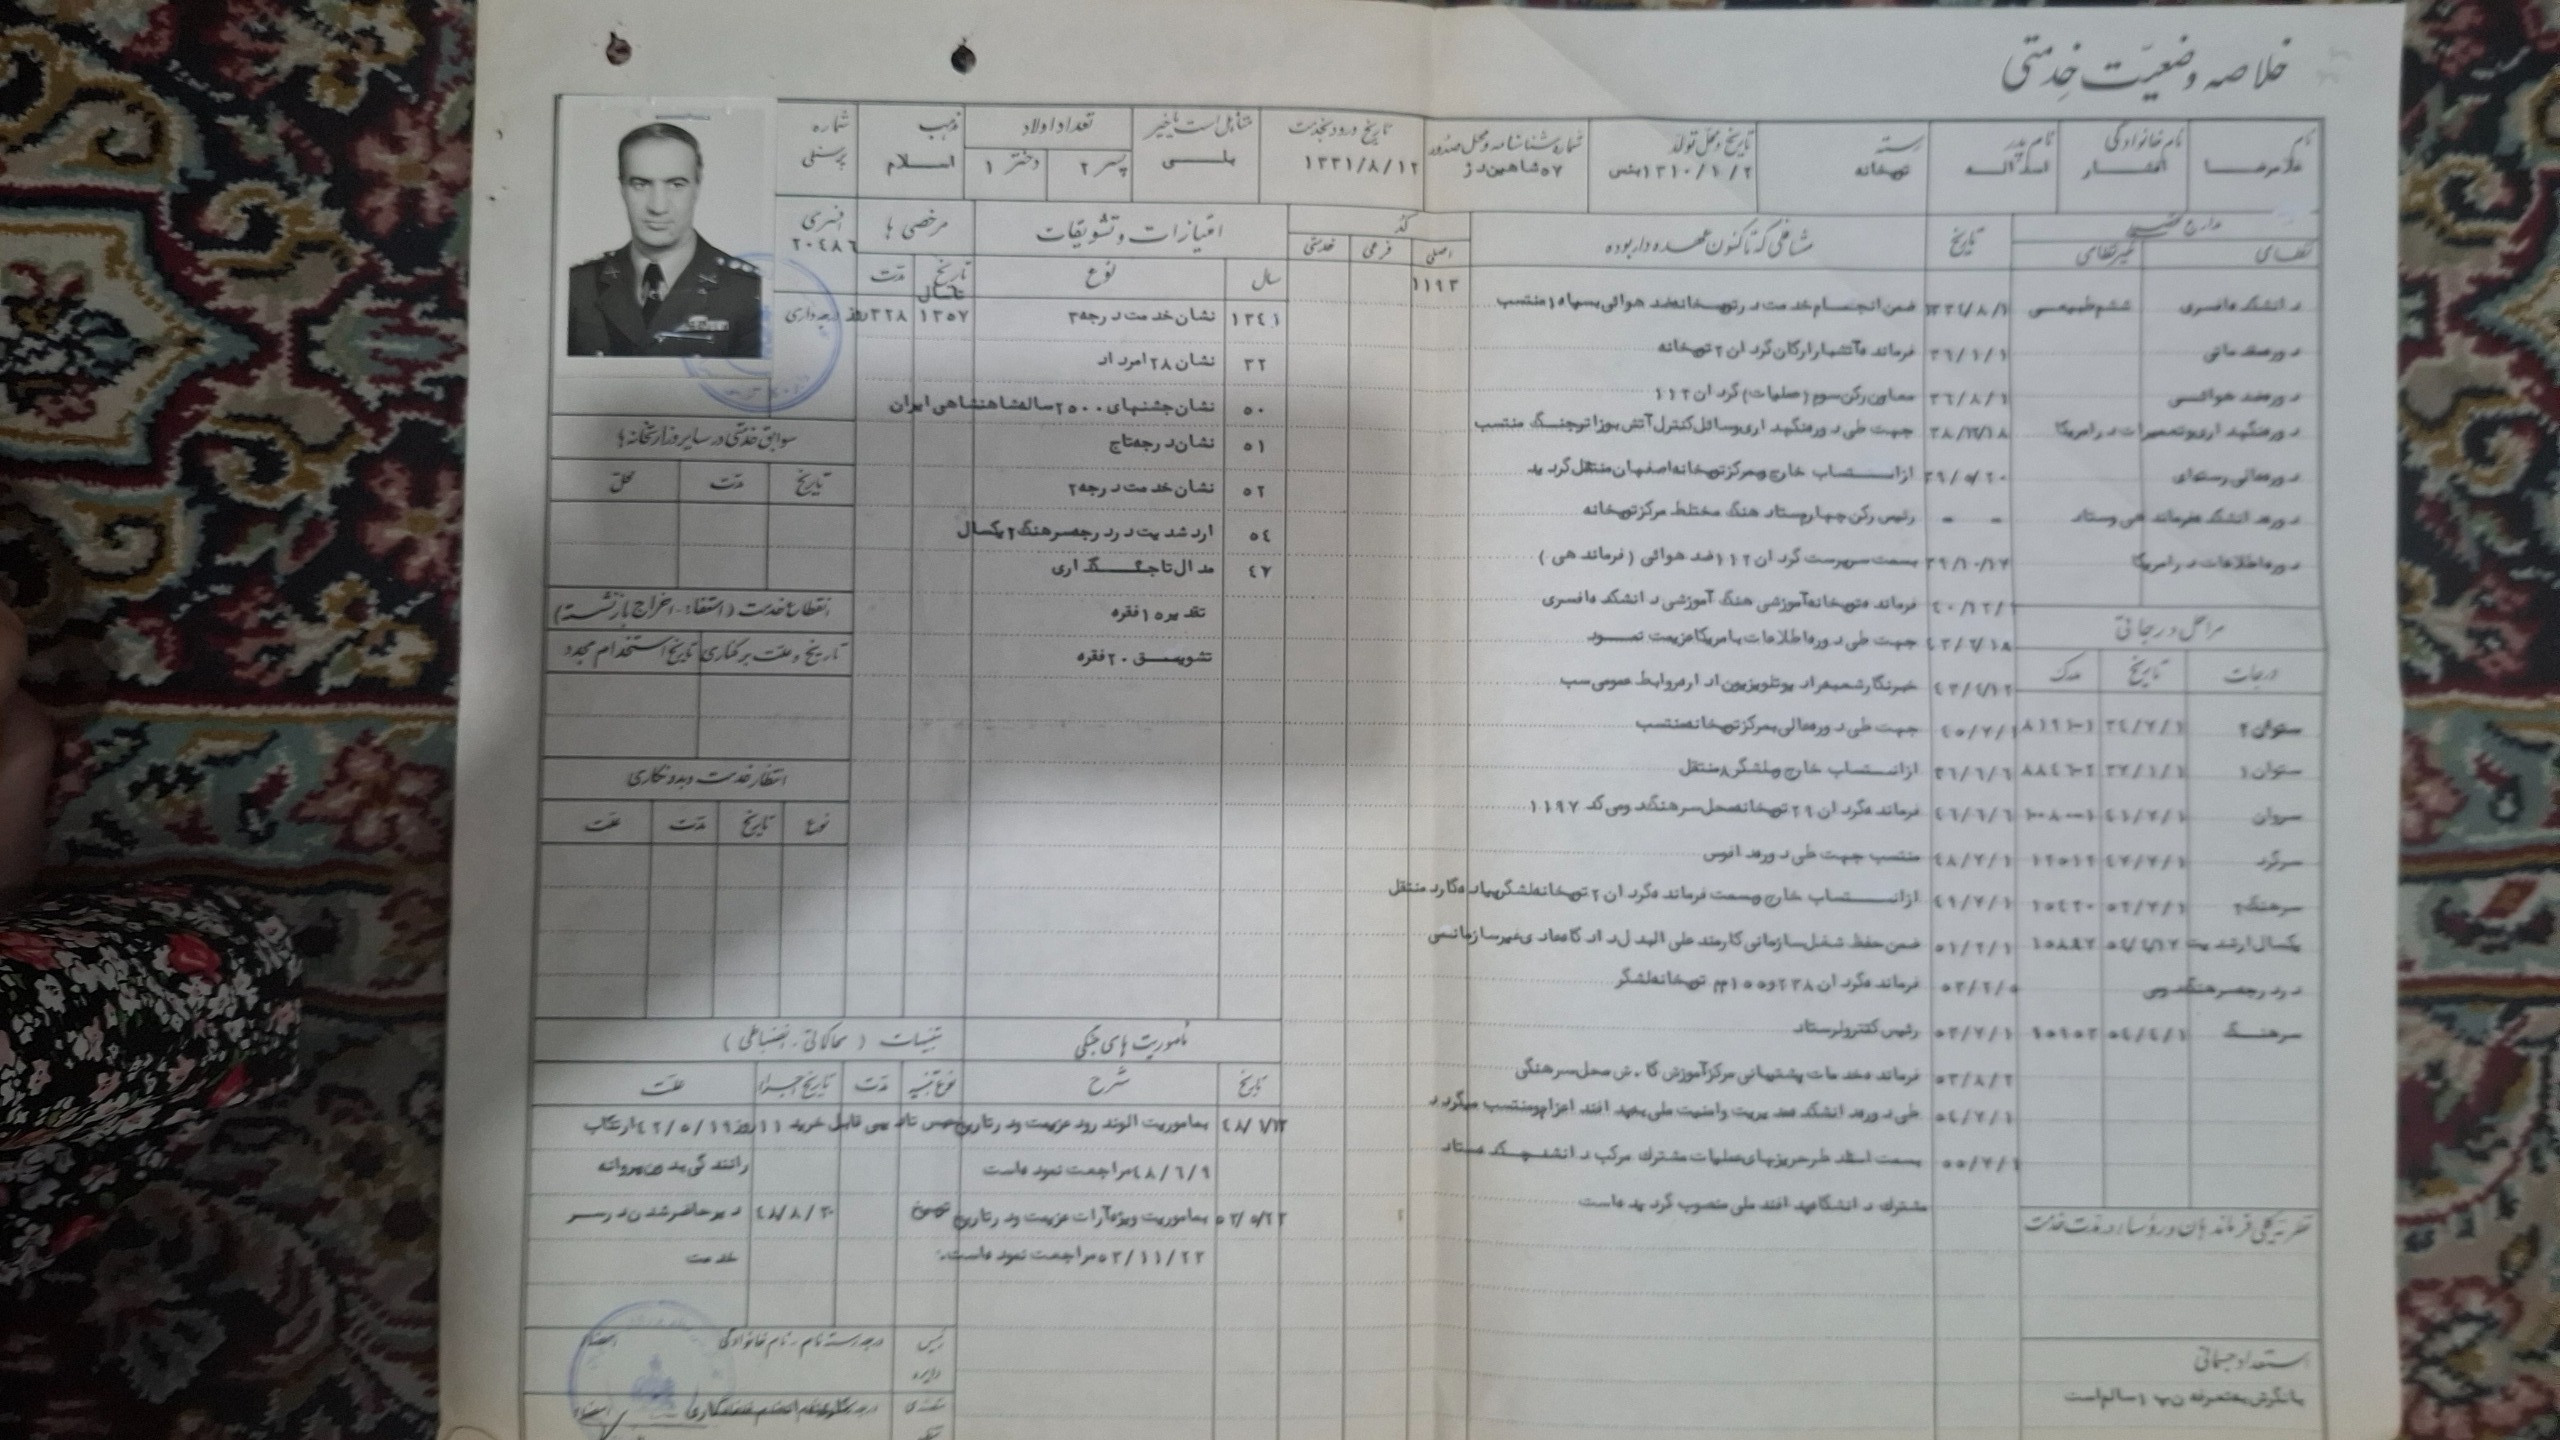 خلاصه وضعیت خدمتی
نام
غلامرضا
نام خانوادگی
افشار
نام پدر
اسداله
رسته
توپخانه
تاریخ و محل تولد
۱۳۱۰/۱/۲
شماره شناسنامه و محل صدور
۵۷ شاهین دژ
تاریخ ورود بخدمت
۱۳۳۱/۸/۱۲
متأهل است یا خیر
بلی
تعداد اولاد
پسر ۲
دختر ۱
مذهب
اسلام
شماره پرسنلی
افسری
۲۰۴۸۶
درجه داری
مدارج تحصیلی
نظامی
غیرنظامی
دانشکده افسری
ششم طبیعی
دوره مقدماتی
دوره ضد هوائی
دوره نگهداری و تعمیرات در امریکا
دوره عالی رسته‌ای
دوره دانشکده فرماندهی و ستاد
دوره اطلاعات در امریکا
مراحل درجاتی
درجات
تاریخ
مدرک
ستوان ۲
۳۴/۷/۱
ستوان ۱
۳۷/۱/۱
سروان
۴۱/۷/۱
سرگرد
۴۷/۷/۱
۱۲۵۱۲
سرهنگ ۲
۵۲/۷/۱
۱۵۴۲۰
یکسال ارشدیت
۱۵۸۹۲
در درجه سرهنگ دومی
سرهنگ
۵۴/۴/۱
نظریه کلی فرماندهان و رؤسا در مدت خدمت
استعداد جسمانی
تاریخ
مشاغلی که تاکنون عهده دار بوده
کد
اصلی
فرعی
خدمتی
۱۱۹۳
ضمن انجام خدمت در توپخانه ضد هوائی بسپاه ۱ منتسب
۳۶/۱/۱
فرمانده آتشبار ارکان گردان ۲ توپخانه
۳۶/۸/۱
معاون رکن سوم (عملیات) گردان ۱۲۲
جهت طی دوره نگهداری وسائل کنترل آتش بوزارت جنگ منتسب
۳۹/۵/۲۰
از انتساب خارج و بمرکز توپخانه اصفهان منتقل گردید
- -
رئیس رکن چهار ستاد هنگ مختلط مرکز توپخانه
۳۹/۱۰/۱۷
بسمت سرپرست گردان ۱۱۲ ضد هوائی (فرماندهی)
فرمانده توپخانه آموزشی هنگ آموزشی دانشکده افسری
۴۳/۲/۱۸
جهت طی دوره اطلاعات بامریکا عزیمت نمود
خبرنگار شعبه رادیو تلویزیون اداره روابط عمومی
۴۵/۷/۱
جهت طی دوره عالی بمرکز توپخانه منتسب
۴۶/۶/۶
از انتساب خارج و بلشگر ۸ منتقل
۴۶/۶/۶
فرمانده گردان ۲۹ توپخانه محل سرهنگ دومی کد ۱۱۹۷
۴۸/۷/۱
منتسب جهت طی دوره دافوس
۴۹/۷/۱
از انتساب خارج و بسمت فرمانده گردان ۲ توپخانه لشگر پیاده گارد منتقل
۵۱/۲/۱
ضمن حفظ شغل سازمانی کارمند علی البدل دادگاه عادی غیر سازمانی
فرمانده گردان ۲۳۸ و ۱۵۵ م‌م توپخانه لشگر
۵۳/۷/۱
رئیس کنترولر ستاد
۵۳/۸/۲
فرمانده خدمات پشتیبانی مرکز آموزش گا.ش محل سرهنگی
۵۴/۷/۱
طی دوره دانشکده مدیریت و امنیت ملی به پدافند اعزام و منتسب میگردد
۵۵/۷/۱
بسمت استاد طرحریزیهای عملیات مشترک مرکب دانشکده جنگ و ستاد
مشترک دانشگاه پدافند ملی منصوب گردیده است
امتیازات و تشویقات
سال
نوع
۱۳۴۱
نشان خدمت درجه ۳
۳۲
نشان ۲۸ امرداد
۵۰
نشان جشنهای ۲۵۰۰ ساله شاهنشاهی ایران
۵۱
نشان درجه تاج
۵۲
نشان خدمت درجه ۲
۵۴
ارشدیت در درجه سرهنگ ۲ یکسال
۴۷
مدال تاجگذاری
تقدیر ۱۵ فقره
تشویق ۲۰ فقره
مرخصی ها
تاریخ
مدت
تا سال ۱۳۵۷
۳۲۸ روز
سوابق خدمتی در سایر وزارتخانه ها
تاریخ
مدت
محل
انقطاع خدمت (استعفاء - اخراج بازنشسته)
تاریخ و علت برکناری
تاریخ استخدام مجدد
انتظار خدمت و بدون کاری
نوع
تاریخ
مدت
علت
مأموریت های جنگی
تاریخ
شرح
بماموریت الوند رود عزیمت و در تاریخ
۴۸/۶/۹ مراجعت نموده است
بماموریت ویژه آرات عزیمت و در تاریخ
۵۳/۱۱/۲۲ مراجعت نموده است.
تنبیهات (محاکماتی - انضباطی)
نوع تنبیه
مدت
تاریخ اجراء
علت
۱۱ روز
۴۲/۵/۱۹
ارتکاب
رانندگی بدون پروانه
توبیخ
۴۸/۸/۳۰
دیر حاضر شدن در سر
خدمت
رئیس دایره
درجه رسته نام - نام خانوادگی
امضاء
متصدی
امضاء